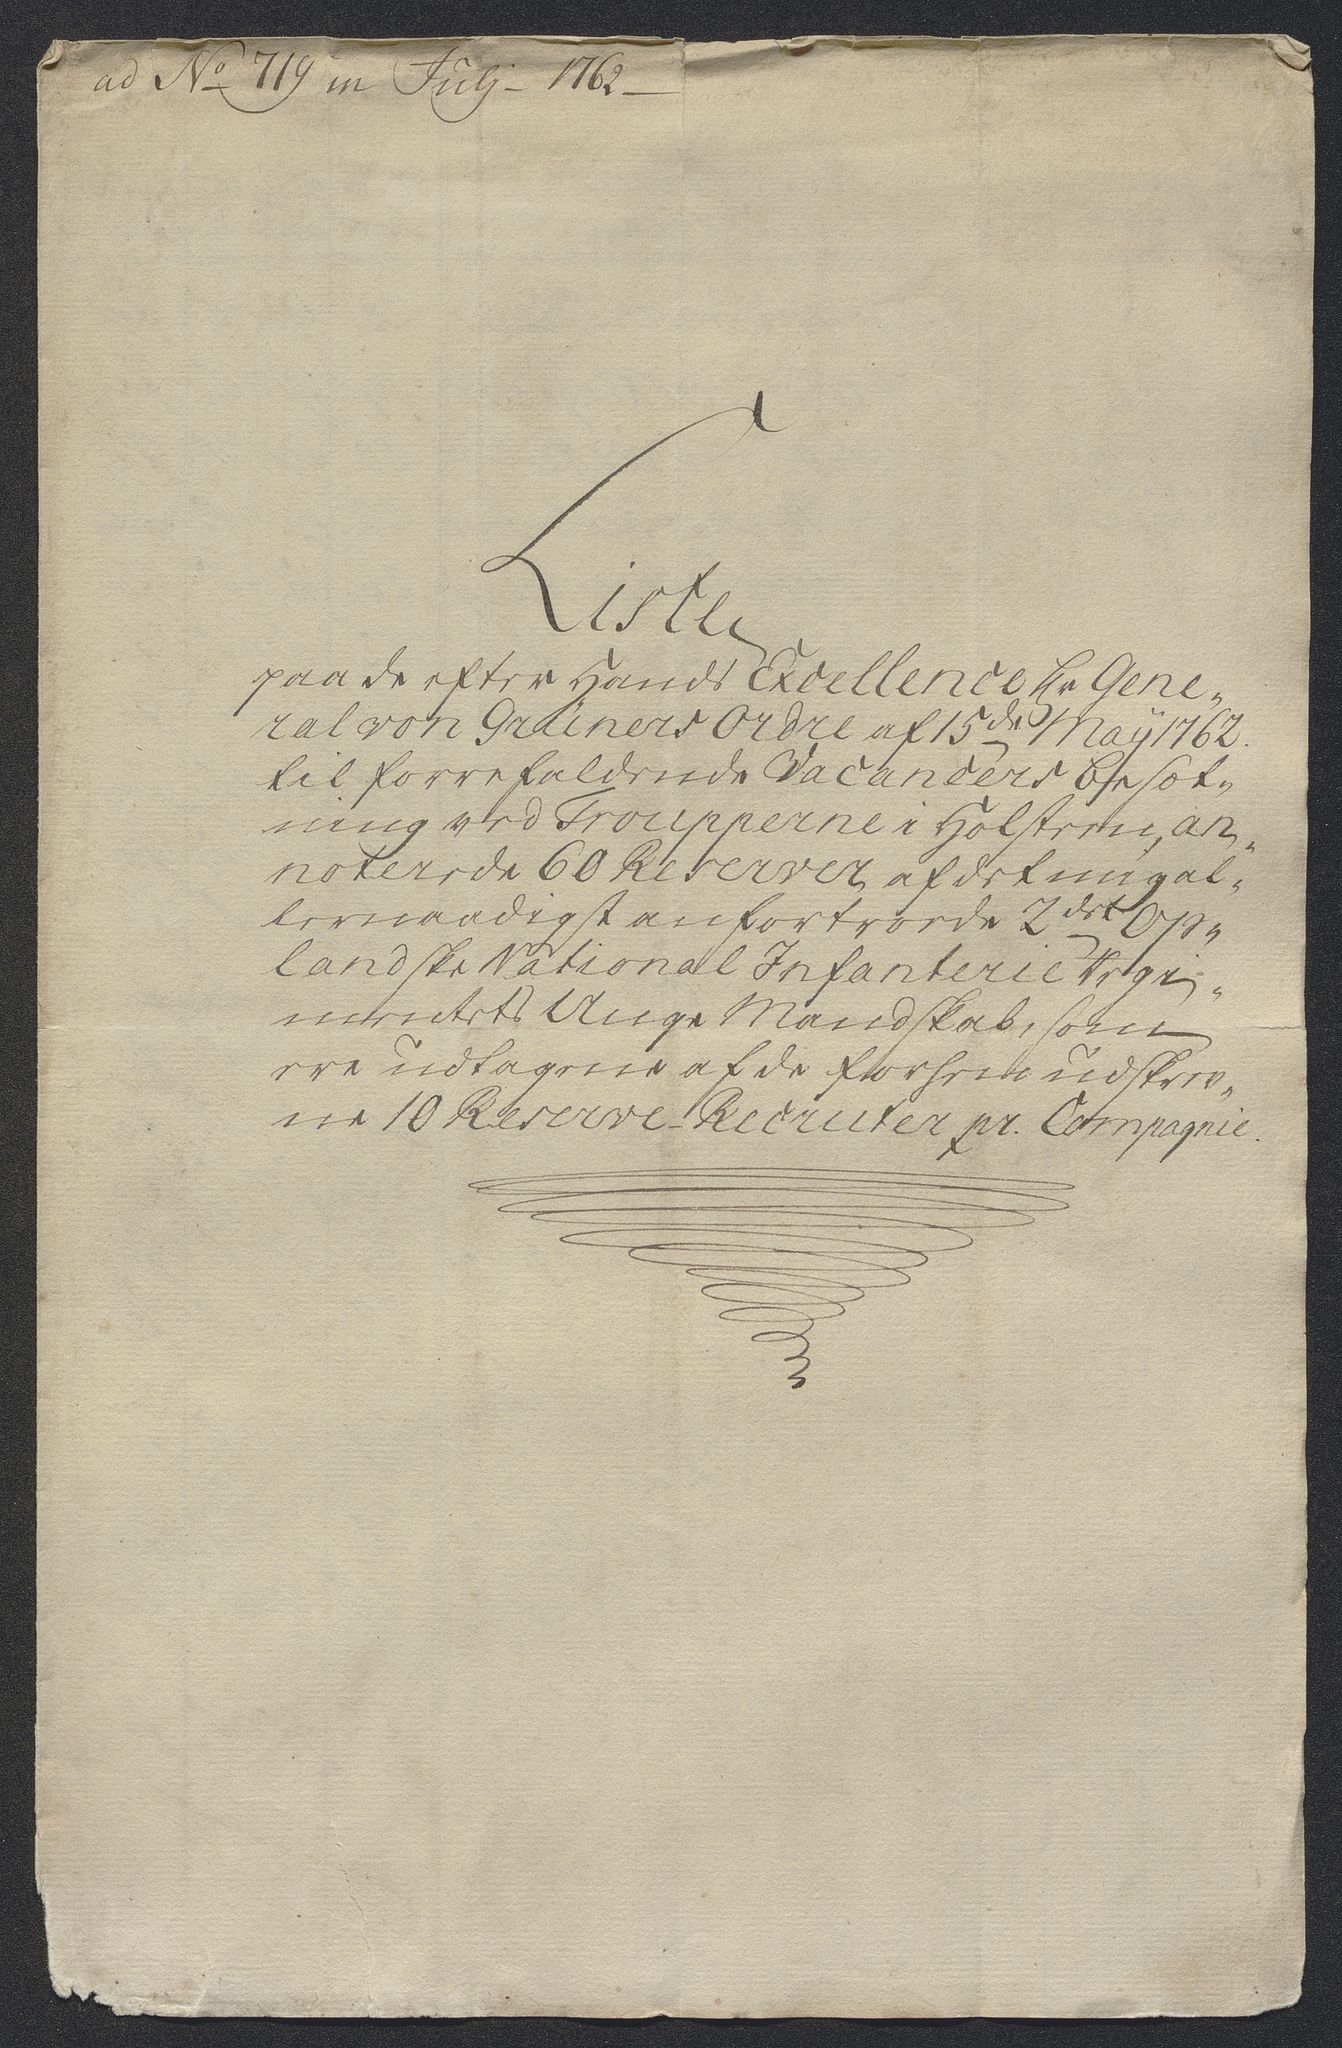 ad No 719 in Julj 1762
Liste
paa de efter Hands Excellence Hr Gene-
ral von Grüners Ordre af 15de May 1762.
til forrefaldende Vacancers Besæt-
ning ved Troupperne i Holsteen, an-
noterede 60 Reserver, af det mig al-
lernaadigst anfortroede 2det Op-
landske National Infanterie Regi-
mentets Unge Mandskab, som
ere udtagene af de forhen udskrev-
ne 10 Reserve-Recruter pr. Compagnie.